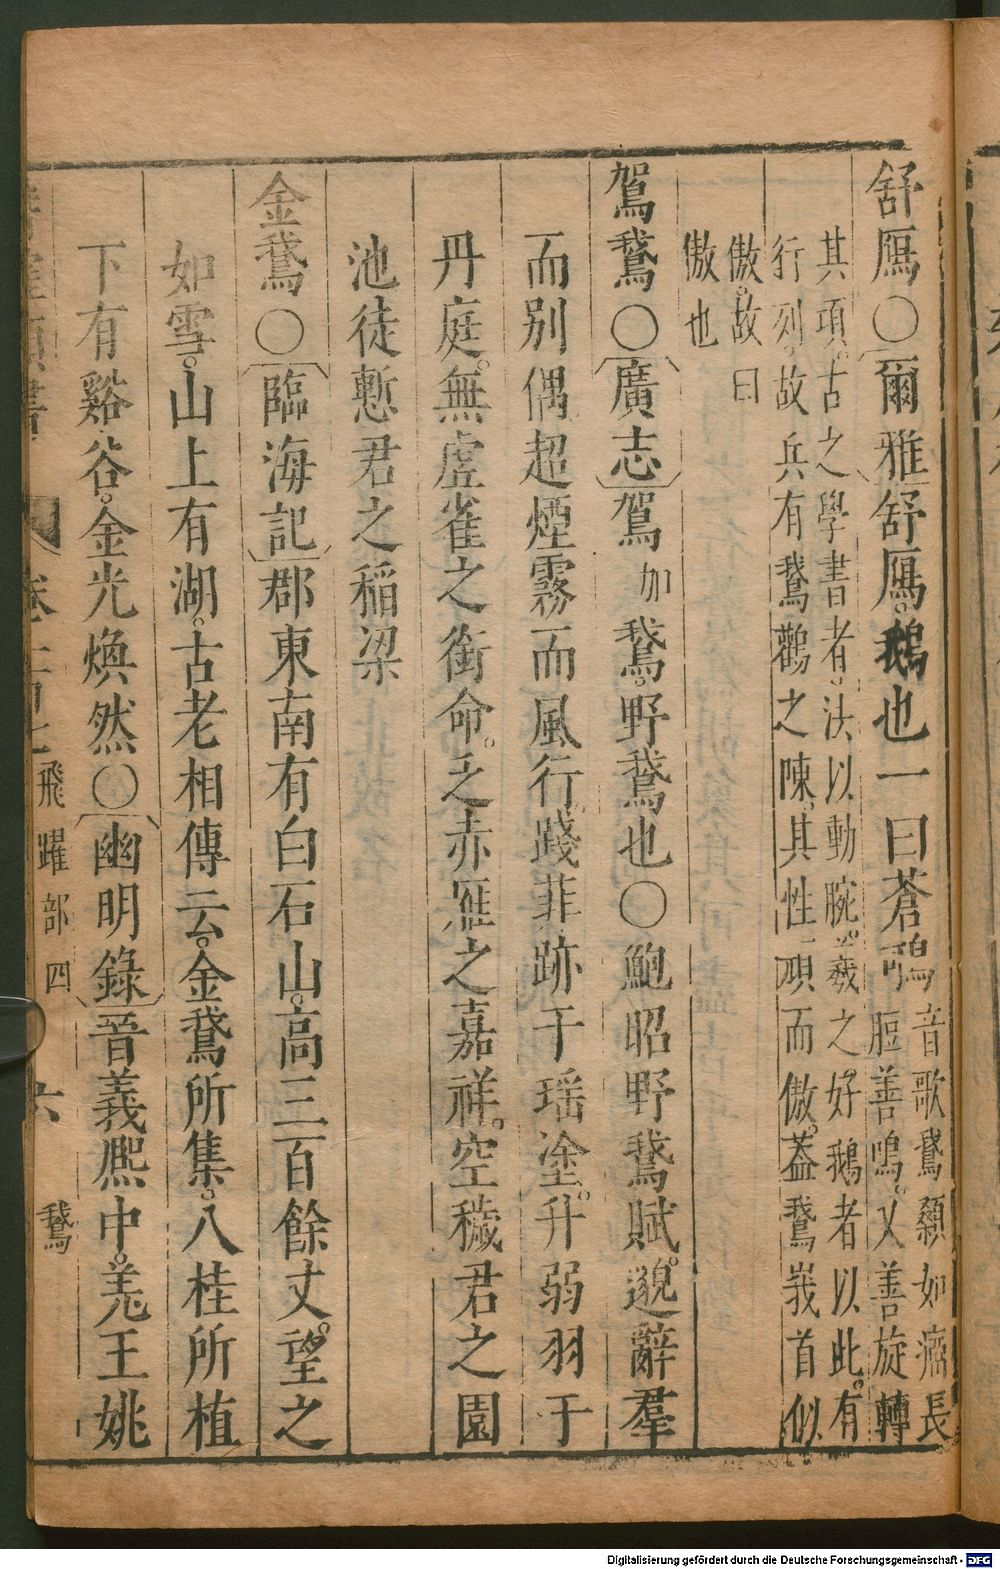 舒鴈○爾雅舒鴈。鵝也一曰蒼鴚音歌鵞纇如瘤長
脰善鳴。又善旋轉
其項。古之學書者。法以動腕。羲之好鵝者以此。有
行列。故兵有鵞鸛之陳。其性頑而傲。蓋鵞峩首似
傲。故曰
傲也
鴐鵞○廣志鴐加鵞。野鵞也○鮑昭野鵞賦。邈辭羣
而別偶超煙霧而風行踐菲跡于瑶塗。升弱羽于
丹庭。無虚雀之銜命。乏赤雁之嘉祥。空穢君之園
池徒慙君之稲梁
金鵞○臨海記郡東南有白石山。高三百餘丈。望之
如雪。山上有湖。古老相傳云。金鵞所集。八桂所植
下有谿谷。金光煥然○幽明錄晉義熈中。羌王姚
卷 飛躍部四 六 鵞
Digitalisierung gefördert durch die Deutsche Forschungsgemeinschaft - DFG